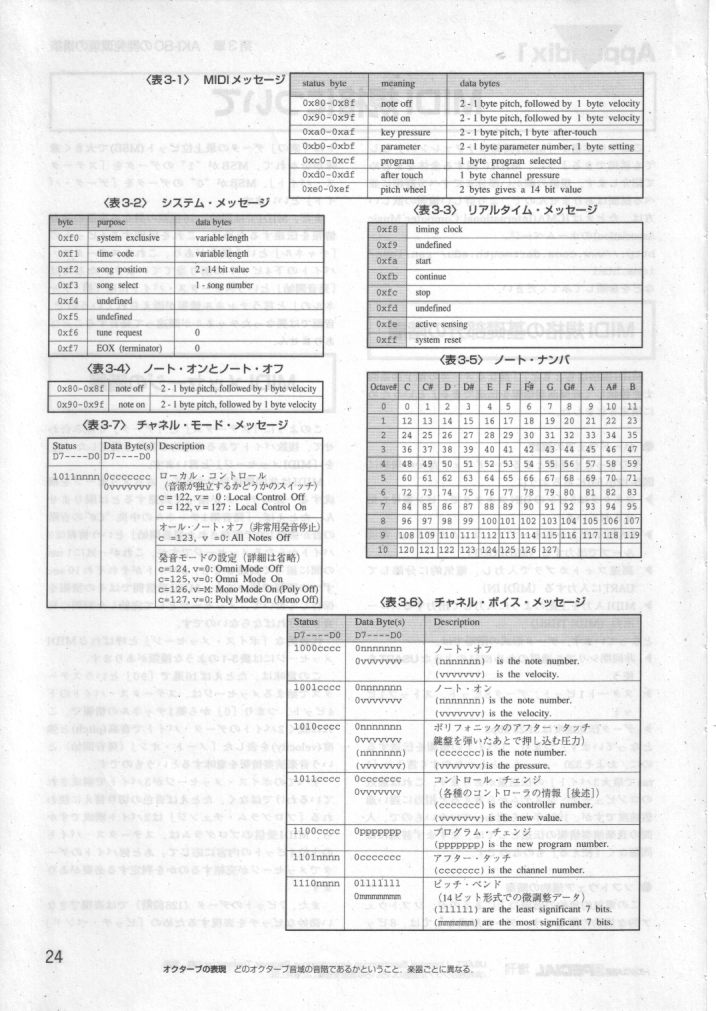 〈表3-1〉 MIDIメッセージ
status byte meaning data bytes
0x80-0x8f note off 2 - 1 byte pitch, followed by 1 byte velocity
0x90-0x9f note on 2 - 1 byte pitch, followed by 1 byte velocity
0xa0-0xaf key pressure 2 - 1 byte pitch, 1 byte after-touch
0xb0-0xbf parameter 2 - 1 byte parameter number, 1 byte setting
0xc0-0xcf program 1 byte program selected
0xd0-0xdf after touch 1 byte channel pressure
0xe0-0xef pitch wheel 2 bytes gives a 14 bit value
〈表3-2〉 システム・メッセージ
byte purpose data bytes
0xf0 system exclusive variable length
0xf1 time code variable length
0xf2 song position 2 - 14 bit value
0xf3 song select 1 - song number
0xf4 undefined
0xf5 undefined
0xf6 tune request 0
0xf7 EOX (terminator) 0
〈表3-3〉 リアルタイム・メッセージ
0xf8 timing clock
0xf9 undefined
0xfa start
0xfb continue
0xfc stop
0xfd undefined
0xfe active sensing
0xff system reset
〈表3-4〉 ノート・オンとノート・オフ
0x80-0x8f note off 2 - 1 byte pitch, followed by 1 byte velocity
0x90-0x9f note on 2 - 1 byte pitch, followed by 1 byte velocity
〈表3-5〉 ノート・ナンバ
Octave# C C# D D# E F F# G G# A A# B
0 0 1 2 3 4 5 6 7 8 9 10 11
1 12 13 14 15 16 17 18 19 20 21 22 23
2 24 25 26 27 28 29 30 31 32 33 34 35
3 36 37 38 39 40 41 42 43 44 45 46 47
4 48 49 50 51 52 53 54 55 56 57 58 59
5 60 61 62 63 64 65 66 67 68 69 70 71
6 72 73 74 75 76 77 78 79 80 81 82 83
7 84 85 86 87 88 89 90 91 92 93 94 95
8 96 97 98 99 100 101 102 103 104 105 106 107
9 108 109 110 111 112 113 114 115 116 117 118 119
10 120 121 122 123 124 125 126 127
〈表3-7〉 チャネル・モード・メッセージ
Status Data Byte(s) Description
D7----D0 D7----D0
1011nnnn 0ccccccc ローカル・コントロール
0vvvvvvv (音源が独立するかどうかのスイッチ)
c = 122, v = 0 : Local Control Off
c = 122, v = 127 : Local Control On
オール・ノート・オフ (非常用発音停止)
c =123, v =0: All Notes Off
発音モードの設定 (詳細は省略)
c=124, v=0: Omni Mode Off
c=125, v=0: Omni Mode On
c=126, v=M: Mono Mode On (Poly Off)
c=127, v=0: Poly Mode On (Mono Off)
〈表3-6〉 チャネル・ボイス・メッセージ
Status Data Byte(s) Description
D7----D0 D7----D0
1000cccc 0nnnnnnn ノート・オフ
0vvvvvvv (nnnnnnn) is the note number.
(vvvvvvv) is the velocity.
1001cccc 0nnnnnnn ノート・オン
0vvvvvvv (nnnnnnn) is the note number.
(vvvvvvv) is the velocity.
1010cccc 0nnnnnnn ポリフォニックのアフター・タッチ
0vvvvvvv 鍵盤を弾いたあとで押し込む圧力)
(nnnnnnn) (ccccccc) is the note number.
(vvvvvvv) (vvvvvvv) is the pressure.
1011cccc 0ccccccc コントロール・チェンジ
0vvvvvvv (各種のコントローラの情報 [後述])
(ccccccc) is the controller number.
(vvvvvvv) is the new value.
1100cccc 0ppppppp プログラム・チェンジ
(ppppppp) is the new program number.
1101nnnn 0ccccccc アフター・タッチ
(ccccccc) is the channel number.
1110nnnn 01111111 ピッチ・ベンド
0mmmmmmm (14ビット形式での微調整データ)
(1111111) are the least significant 7 bits.
(mmmmmm) are the most significant 7 bits.
24
オクターブの表現 どのオクターブ音域の音階であるかということ. 楽器ごとに異なる.